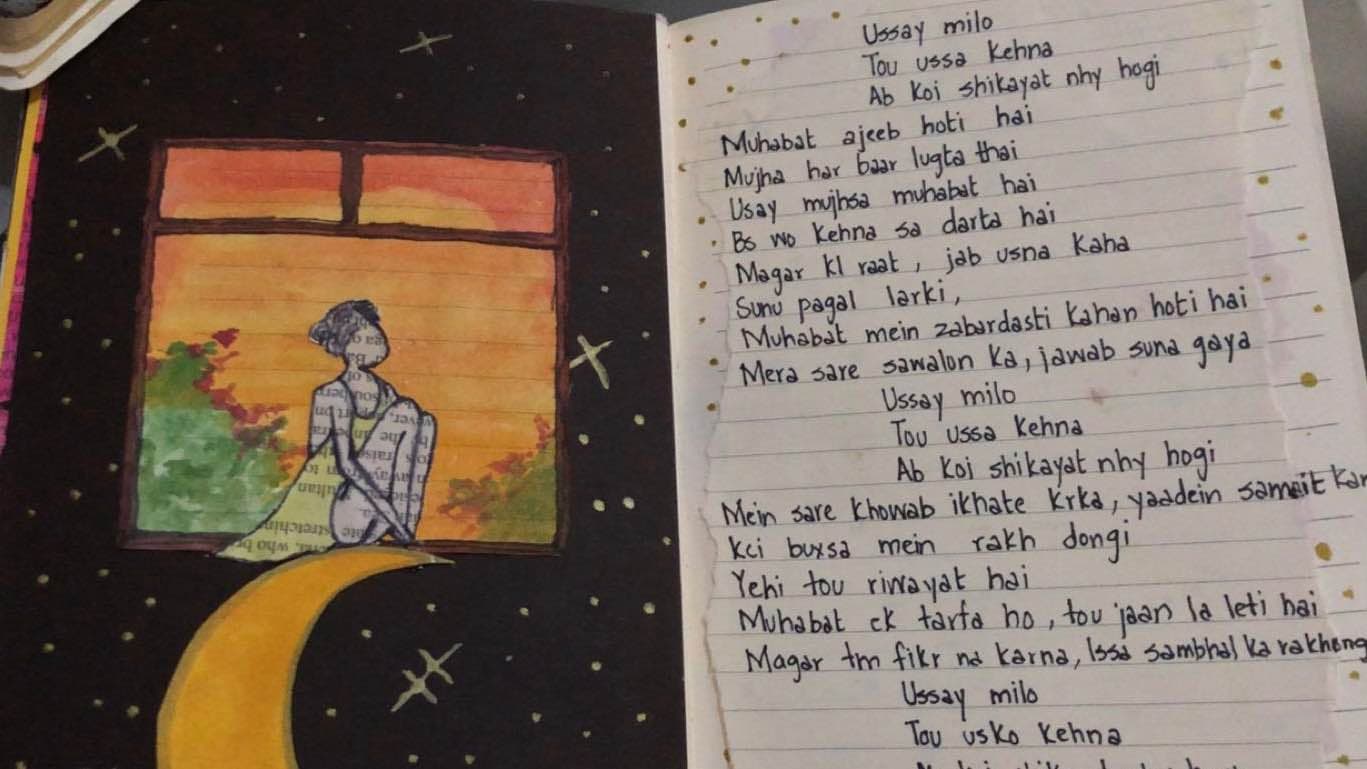 Ussay milo
Tou ussa kehna
Ab koi shikayat nhy hogi
Muhabat ajeeb hoti hai
Mujha har baar lugta thai
Usay mujhsa muhabat hai
Bs wo kehna sa darta hai
Magar kl raat, jab usna kaha
Sunu pagal larki,
Muhabat mein zabardasti kahan hoti hai
Mera sare sawalon ka, jawab suna gaya
Ussay milo
Tou ussa kehna
Ab koi shikayat nhy hogi
Mein sare khowab ikhate krka, yaadein samait kar
kci buxsa mein rakh dongi
Yehi tou riwayat hai
Muhabat ek tarfa ho, tou jaan la leti hai
Magar tm fikr na karna, Issa sambhal ka rakheng
Ussay milo
Tou usko kehna